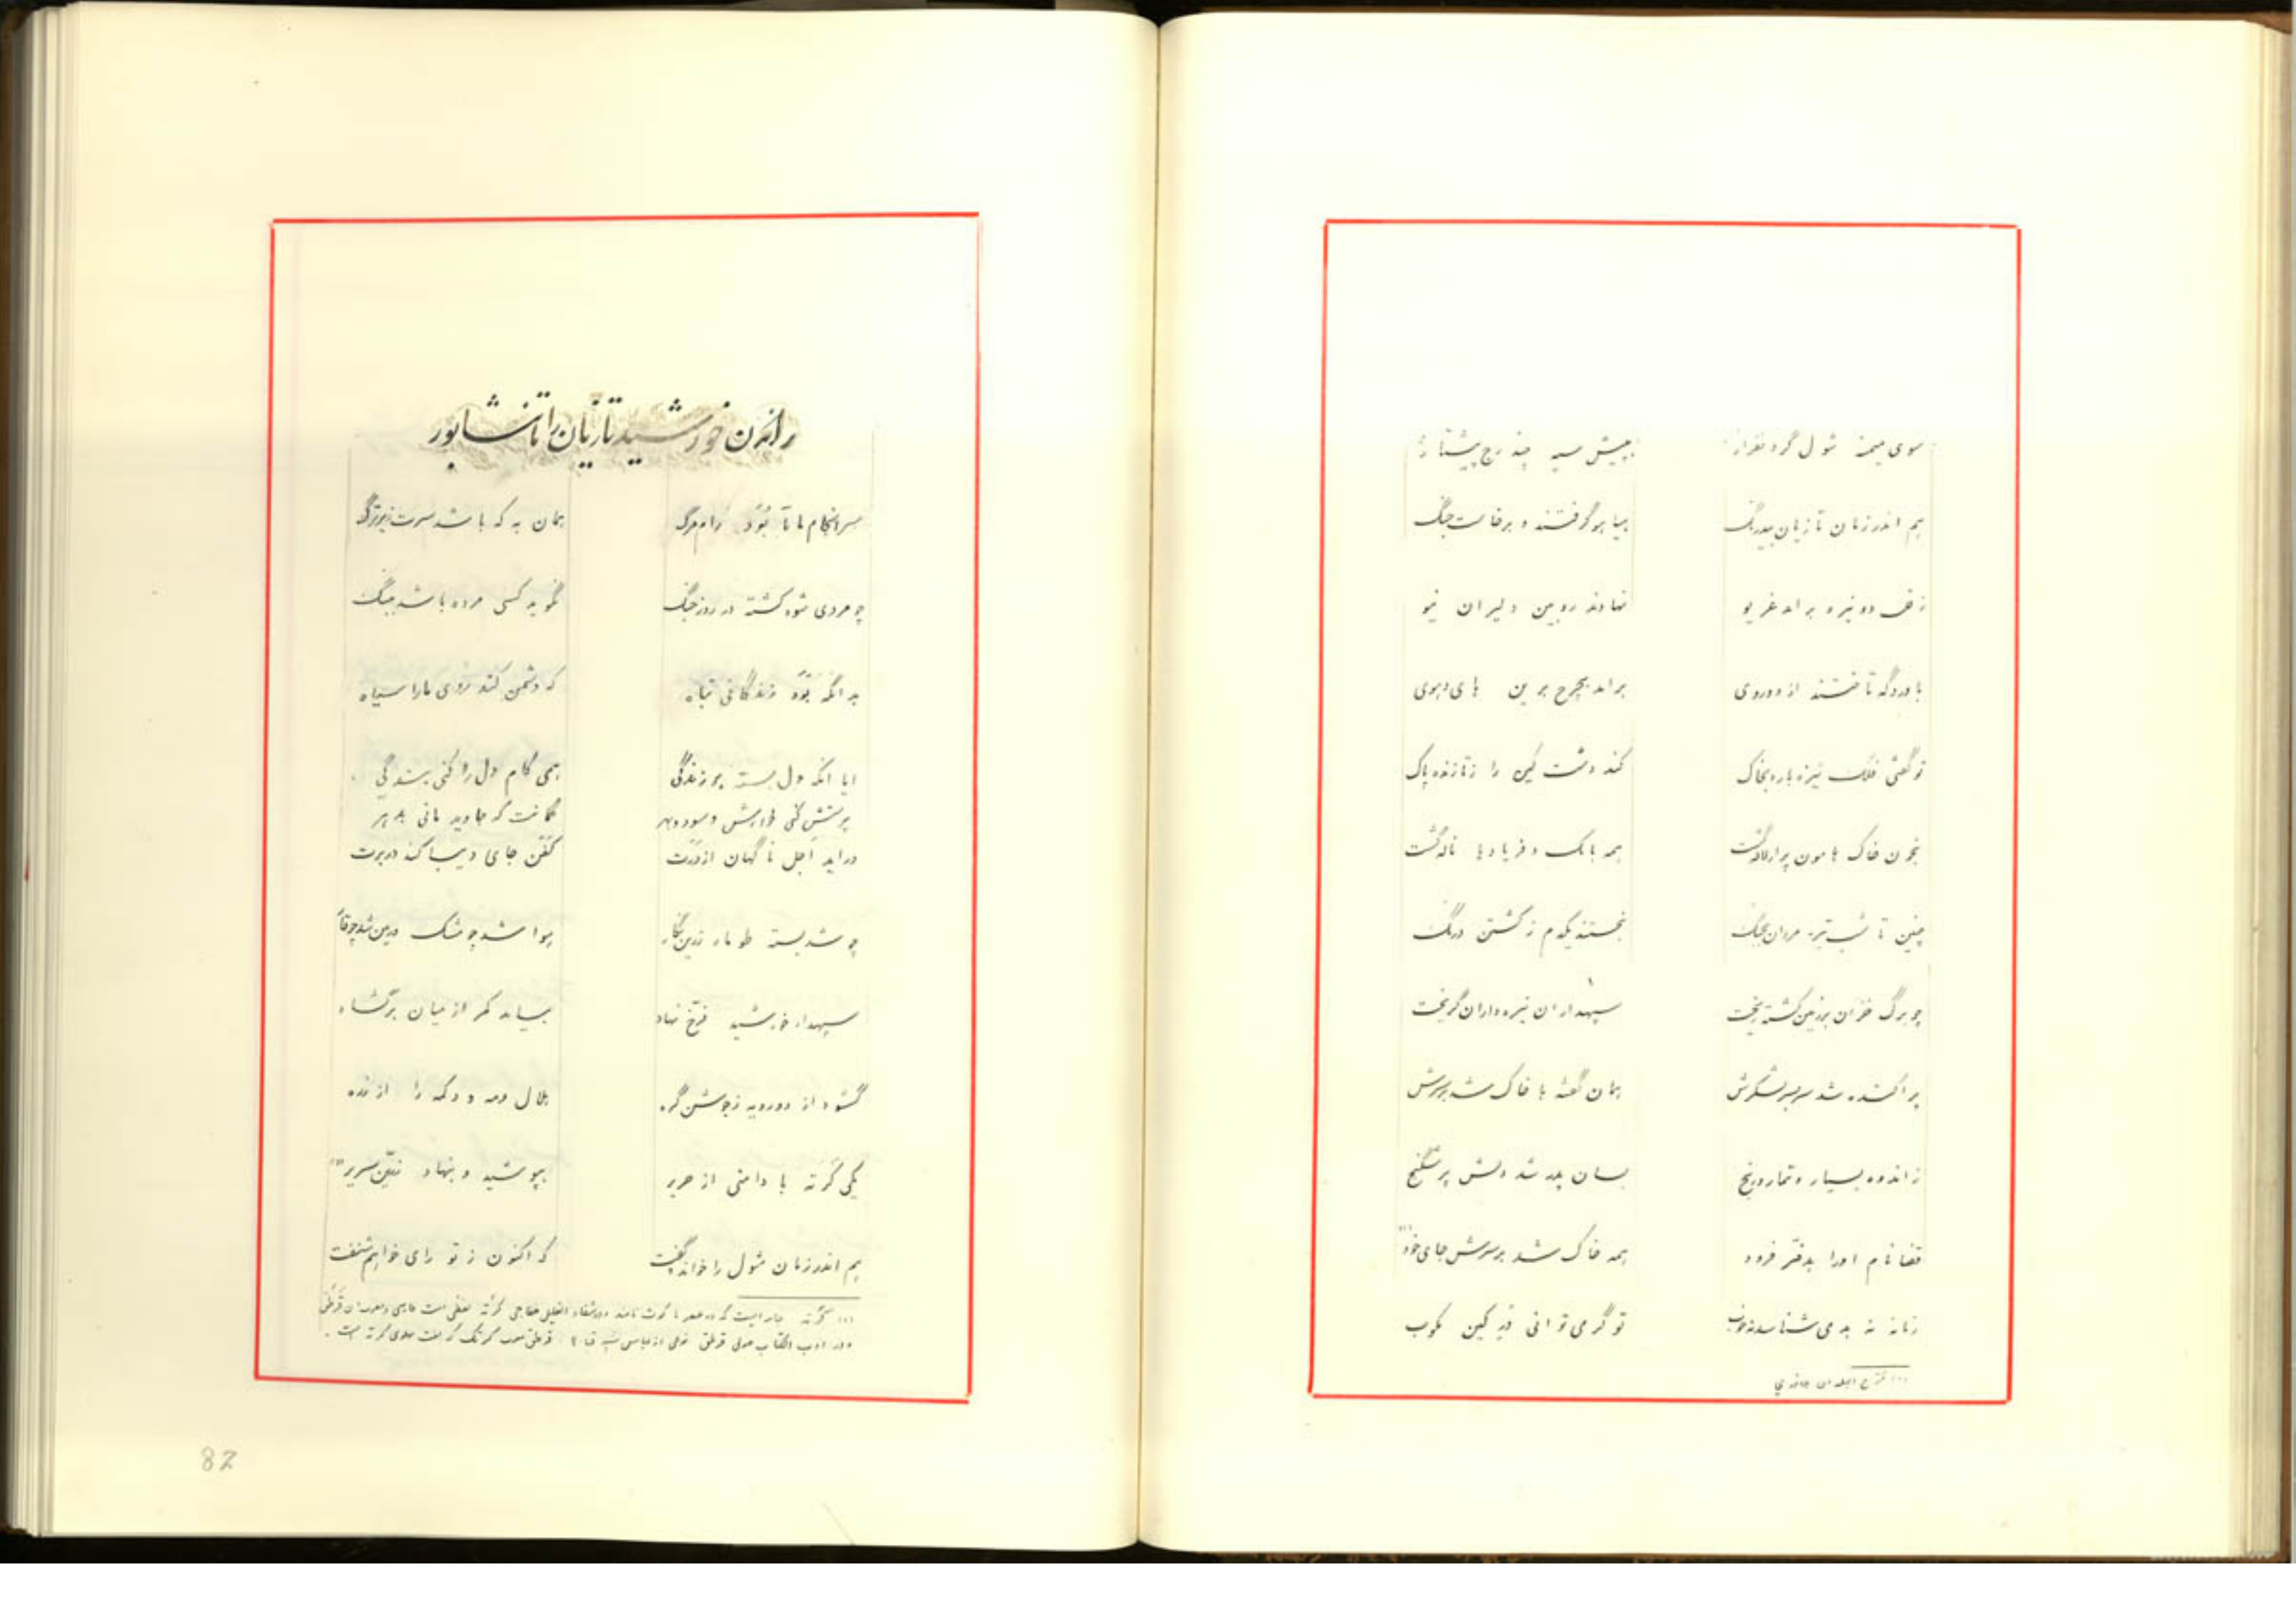 سوی میمنه شول گردنفراز بپیش سپه چند رج پیشتاز
هم اندر زمان تازیان بیدرنگ هیاهو گرفتند و برخاست جنگ
نهادند روبین دلیران نیو
باوردگه تاختند از دوروی برامد بچرخ برین های وهوی
تو گفتی فلک نیزه بارد بخاک کند دشت کین را زتازنده پاک
بخون خاک هامون پر ازلاله گشت همه بانک و فریادها ناله گشت
چنین تا شب تیره مردان جنگ نجستند یکدم ز کشتن درنگ
چو برگ خزان برزمین کشته ریخت سپهدار ان نیزه داران گریخت
پراکنده شد سربسر لشکرش همان گفته با خاک شد برسرش
ز اندوه بسیار و تیمار ورنج بسان شد دلش پر شکنج
قضا نام اورا بدفتر فزود همه خاک شد برسرش جای خود
زمانه نه بد می شناسد نه خوب تو گر می توانی در کین مکوب
(۱) فتوح البلدان
راندن خورشید تازیان را تا نشابور
سرانجام ما تا بود رام مرگ همان به که باشد سرت زیر ترگ
چو مردی شود کشته در روز جنگ نگوید کسی مرده باشد بننگ
به انگه بود زندگانی تباه که دشمن کند روی مارا سیاه
ایا انکه دل بسته بر زندگی همی کام دل را کنی بندگی
پرستش کنی خورش و گمانت که جاوید مانی بدهر
دراید اجل ناگهان از درت کفن جای دیبا کند دربرت
چو شد بسته طومار زرین نگار هوا شد چو مشک و زمین شد چو قار
سپهدار خورشید فرخ نهاد بیامد کمر از میان برگشاد
گشود از دورویه زجوشن گره دمه و دکمه را از زره
یکی کرته با دامنی از حریر بپوشید و بنهاد سریر (۱)
هم اندر زمان شول را خواند وگفت که اکنون ز تو رای خواهم شنفت
(۱) کرته جامه ایست که کرته لفظی است فارسی
82